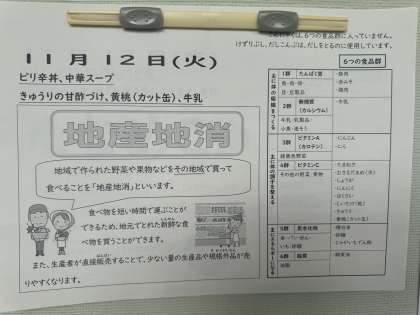 こんにゃくは、6つの食品群に入っていません。
けずりぶし、だしこんぶは、だしをとるのに使用しています。
11月12日(火)
ピリ辛丼、中華スープ
きゅうりの甘酢づけ、黄桃(カット缶)、牛乳
地産地消
地域で作られた野菜や果物などをその地域で買って
食べることを「地産地消」といいます。
食べ物を短い時間で運ぶことが
できるため、地元でとれた新鮮な食
べ物を買うことができます。
また、生産者が直接販売することで、少ない量の生産品や規格外品が売
りやすくなります。
6つの食品群
主に体の組織をつくる
1群 たんぱく質
魚・肉・卵・
豆・豆製品
・豚肉
・赤みそ
・鶏肉
2群 無機質
(カルシウム)
牛乳・乳製品・
小魚・海そう
・牛乳
主に体の調子を整える
3群 ビタミンA
(カロテン)
緑黄色野菜
・にんじん
・にら
4群 ビタミンC
その他の野菜・果物
・たまねぎ
・しょうが
・にんにく
・はくさい
・きゅうり
・黄桃(カット缶)
主にエネルギーになる
5群 炭水化物
米・パン・めん・
いも・砂糖
・精白米
・砂糖
・じゃがいもでん粉
6群 脂質
油脂